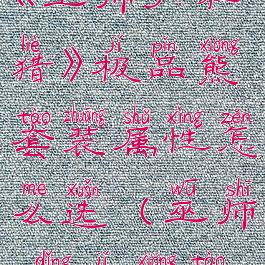 liè jí pǐn xióng
猎》极品熊
tào zhuāng shǔ xìng zěn
套装属性怎
me xuǎn wū shī
么选(巫师
dǐng jí xióng tào